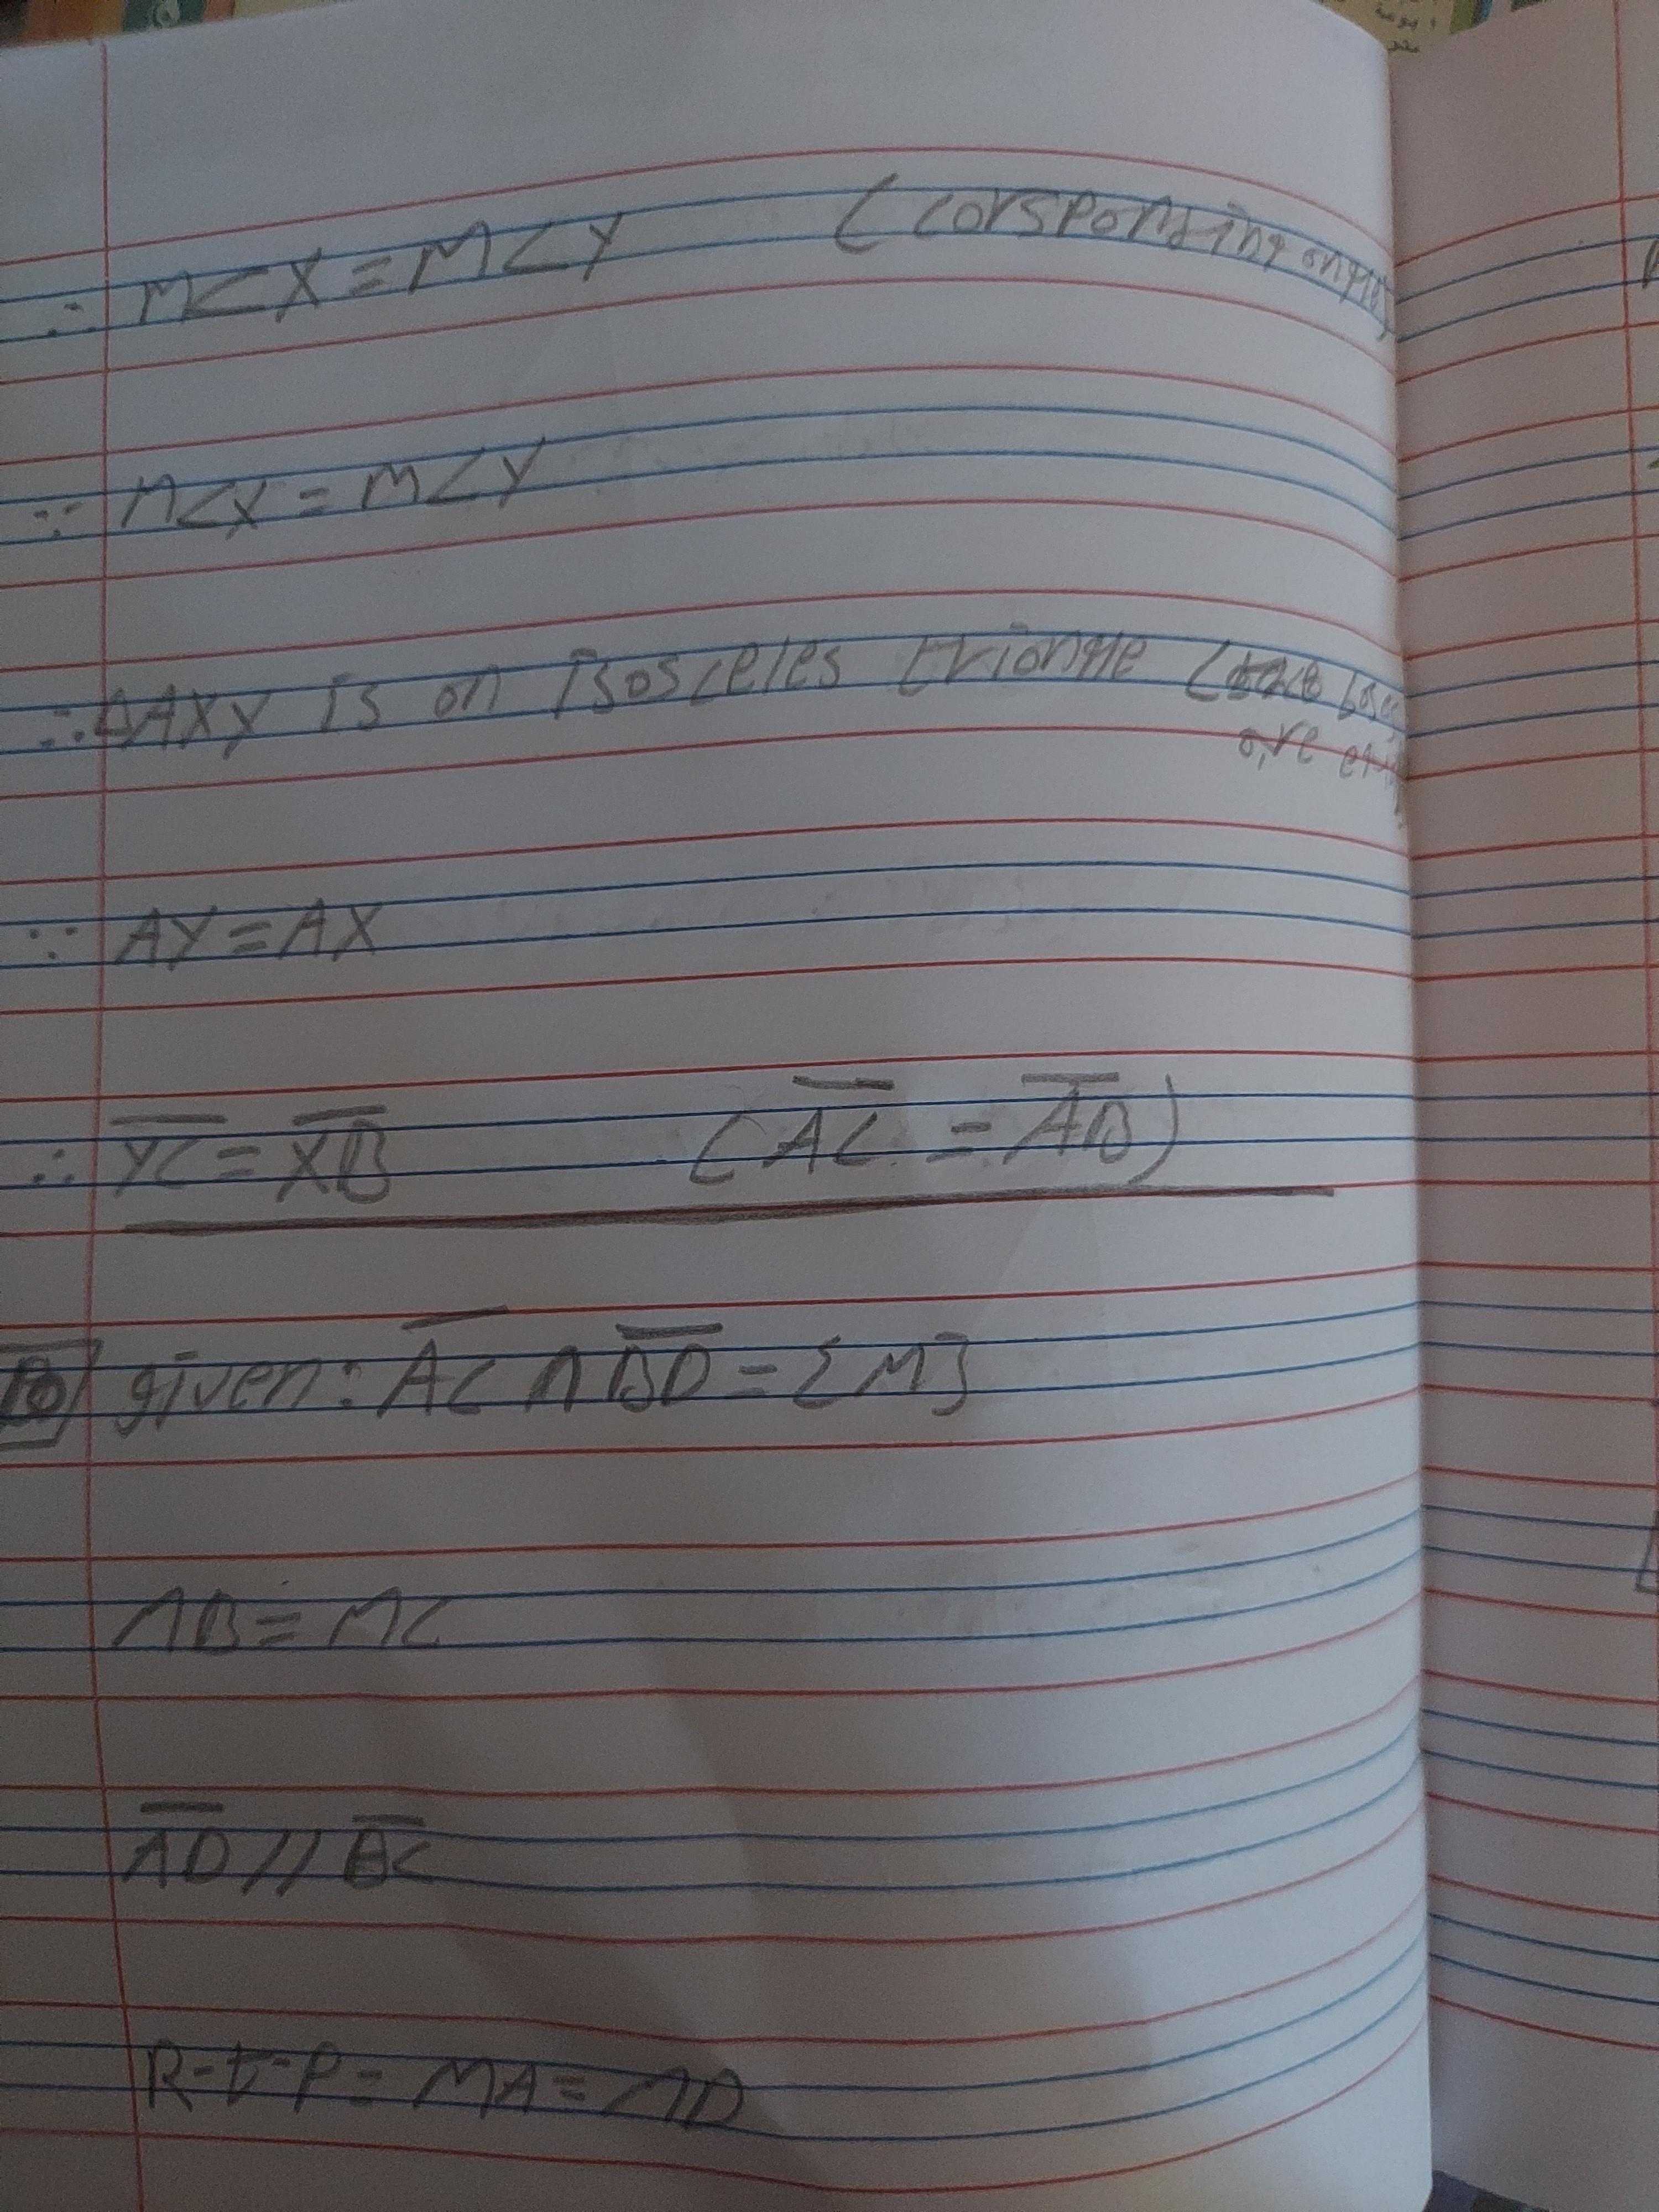 ∴ m<X = m<Y (corsponding angles
∵ m<X = m<Y
∴ ΔAXY is an isosceles triangle (base
are
∵ AY = AX
∴ YC = XB (AC = AB)
given: AC ∩ BD = {M}
MB = MC
AD // BC
R-t-P = MA = MD